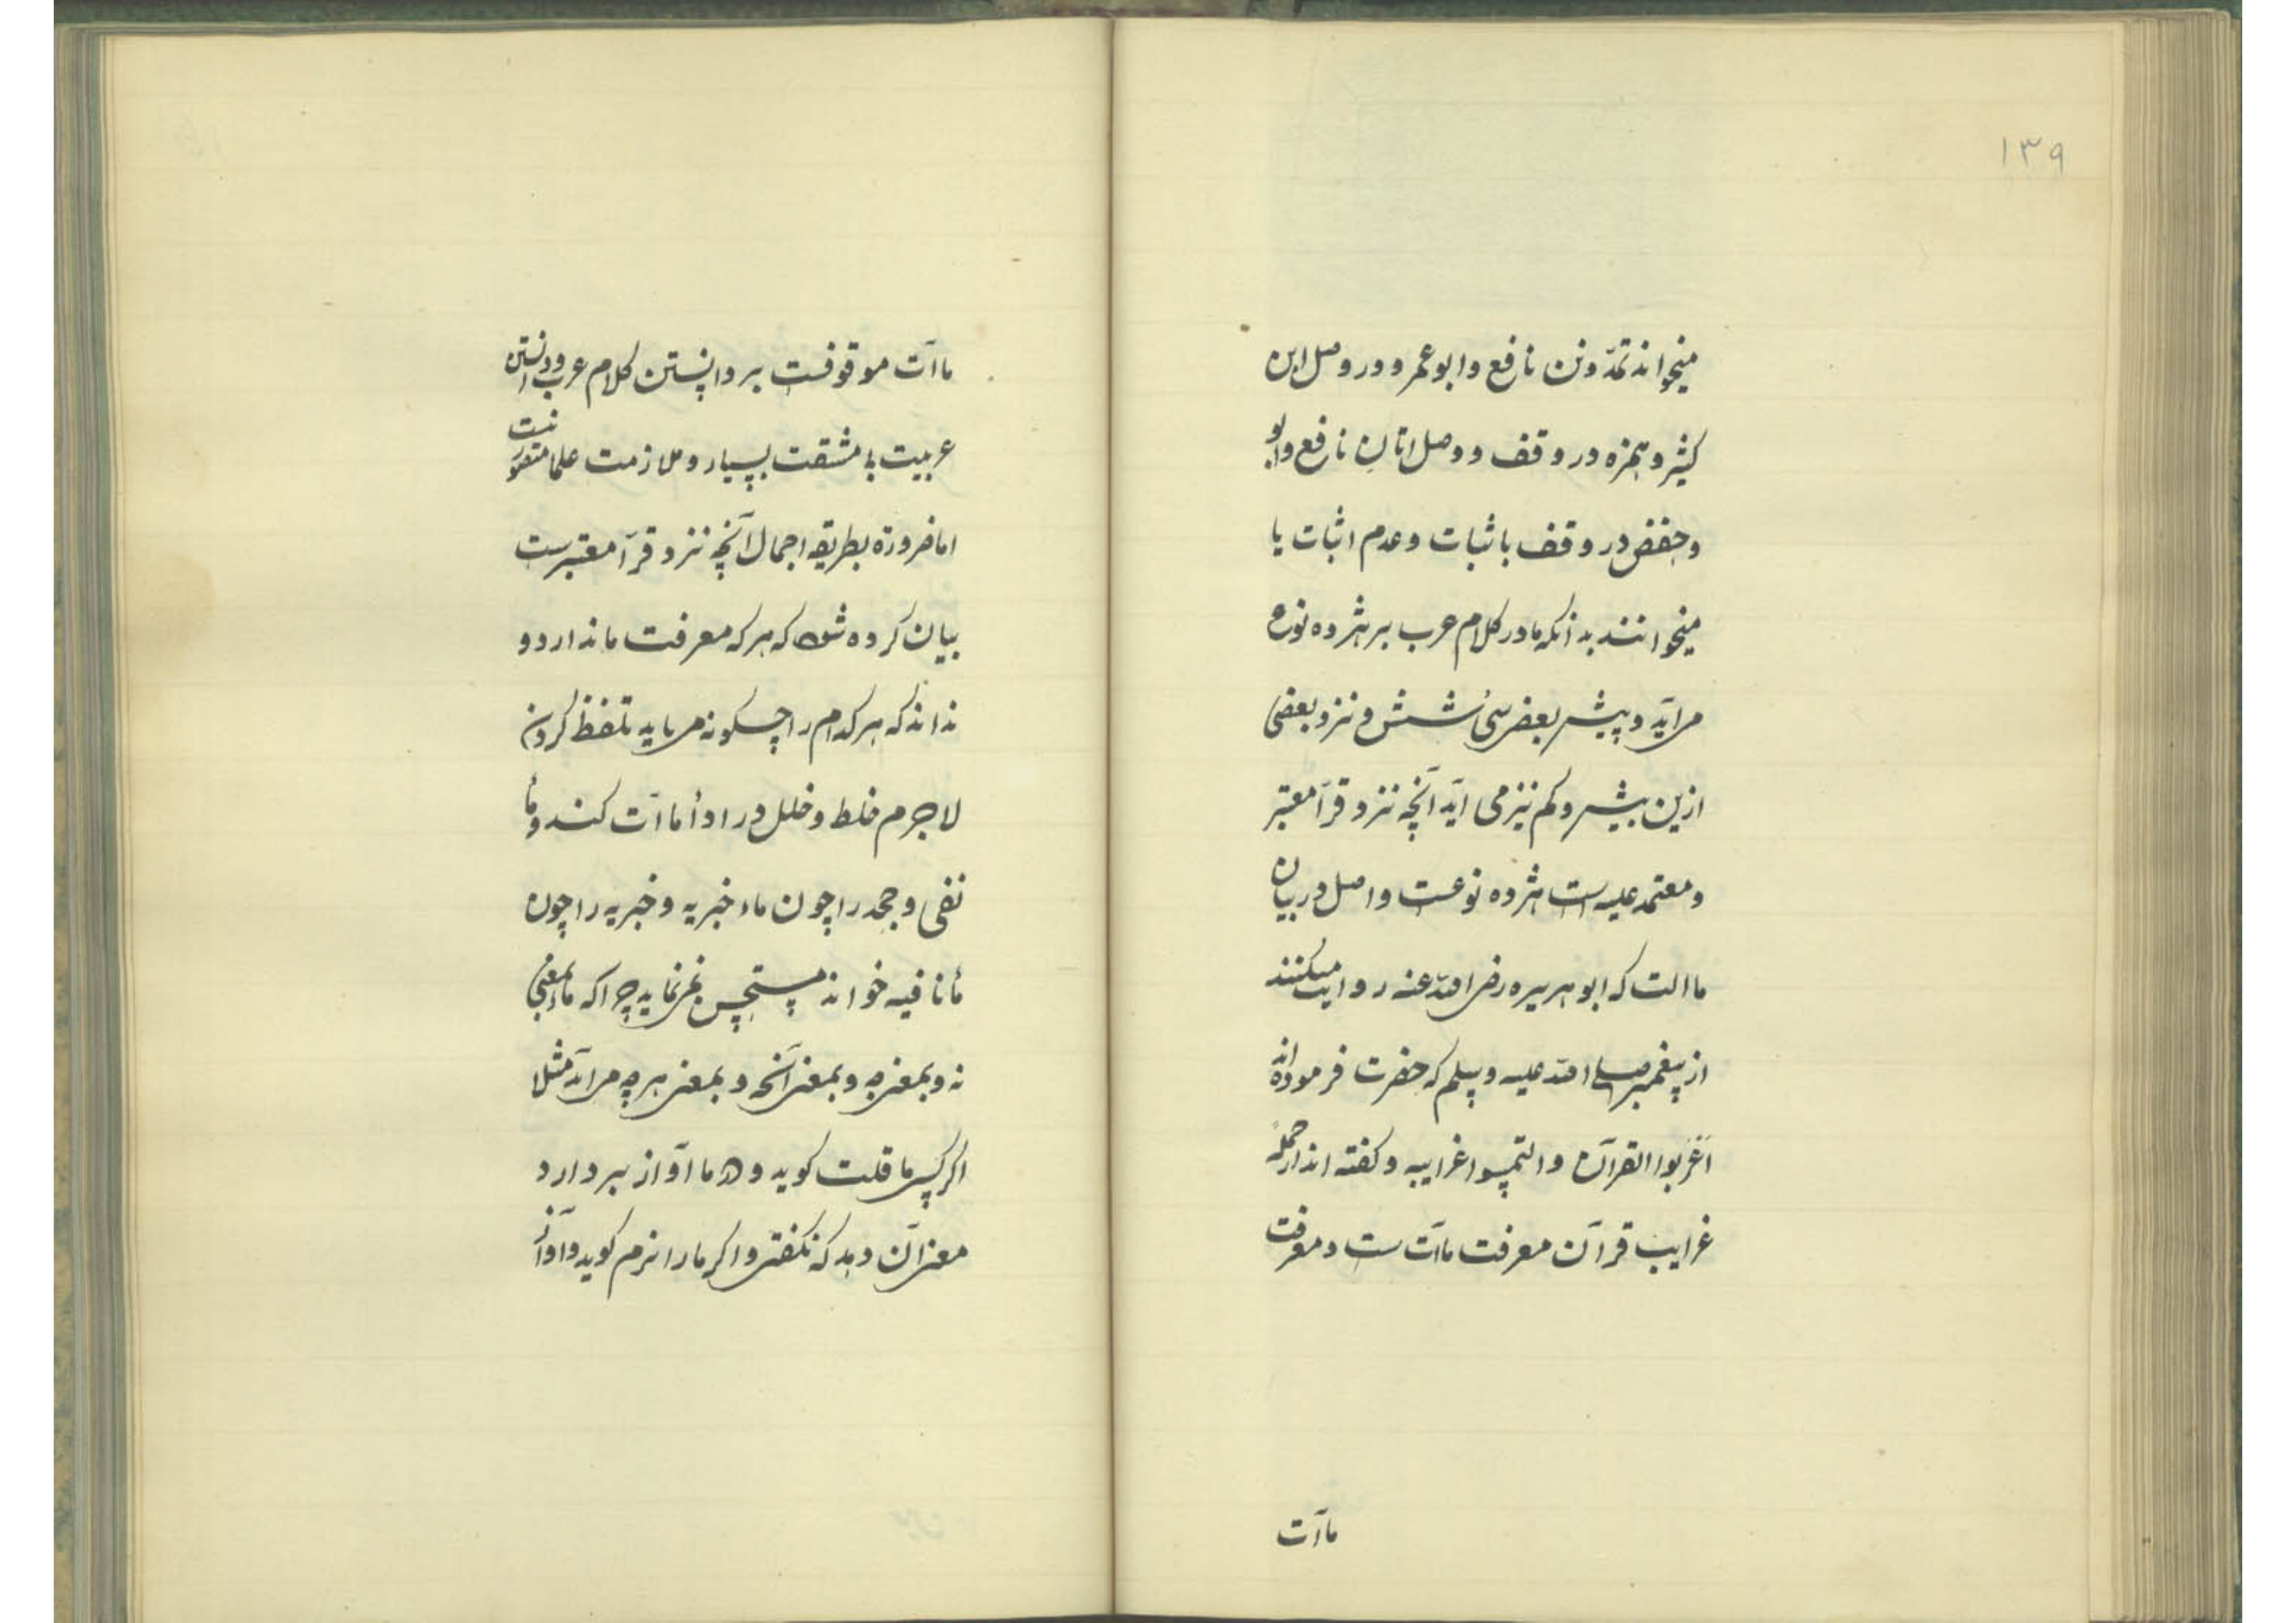 ۱۳۹
میخواند تمدّونن نافع وابوعمرو در وصل ابن
کثیر وهمزه در وقف و وصل اتان نافع وابو
وحفض در وقف باثبات وعدم اثبات یا
میخوانند بدانکه ما در کلام عرب بر هژده نوع
مراید وپیش بعضی سی شش و نزد بعضی
ازین بیشر وکم نیز می آید آنچه نزد قرآ معتبر
ومعتمد علیه است هژده نوعست واصل در بیان
ماات که ابو هریره رضی الله عنه روایت میکنند
از پیغمبر صلی الله علیه وسلم که حضرت فرموده اند
اَعْرَبوا القرآن والتمسوا غرایبه وکفته اند از جمله
غرایب قرآن معرفت ماآت ست ومعرفت
ماآت
ماآت موقوفست بر دانستن کلام عرب ودانستن
عربیت با مشقت بسیار وملازمت علما متصور نیست
اما ضرورة بطریقه اجمال آنچه نزد قرآ معتبرست
بیان کرده شود که هر که معرفت ما ندارد و
نداند که هر کدام را چکونه مر باید تلفظ کردن
لاجرم غلط وخلل در ادأ ماآت کند وما
نفی وجحد را چون ماء خبریه وخبریه را چون
مأ نافیه خواند مستحسن نمر نماید چرا که ما بمعنی
نه وبمعنی چه وبمعنی آنچه وبمعنی هر چه مر آید مثلا
اکر کسی ما قلت کوید ودر ما آواز بر دارد
معنی آن دهد که نکفتی واکر ما را نرم کوید وآواز